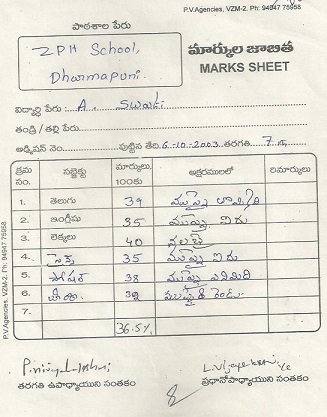 P.V.Agencies, VZM-2. Ph: 94947 75958
పాఠశాల పేరు
ZPH School,
Dharmapuri.
మార్కుల జాబితా
MARKS SHEET
విద్యార్ధి పేరు : A. Swati
తండ్రి / తల్లి పేరు
అడ్మిషన్ నెం. పుట్టిన తేది. 6-10-2003 తరగతి 7
క్రమ సం. సబ్జెక్టు మార్కులు 100కు అక్షరములలో రిమార్కులు
1. తెలుగు 39 ముప్పై
2. ఇంగ్లీషు 35 ముప్పై ఐదు
3. లెక్కలు 40 నలభై
4. సైన్స్ 35 ముప్పై ఐదు
5. సోషల్ 38 ముప్పై ఎనిమిది
6. హిందీ 32 ముప్పై రెండు
7.
36.5%
P.V.Agencies, VZM-2. Ph: 94947 75958
తరగతి ఉపాధ్యాయుని సంతకం ప్రధానోపాధ్యాయుని సంతకం